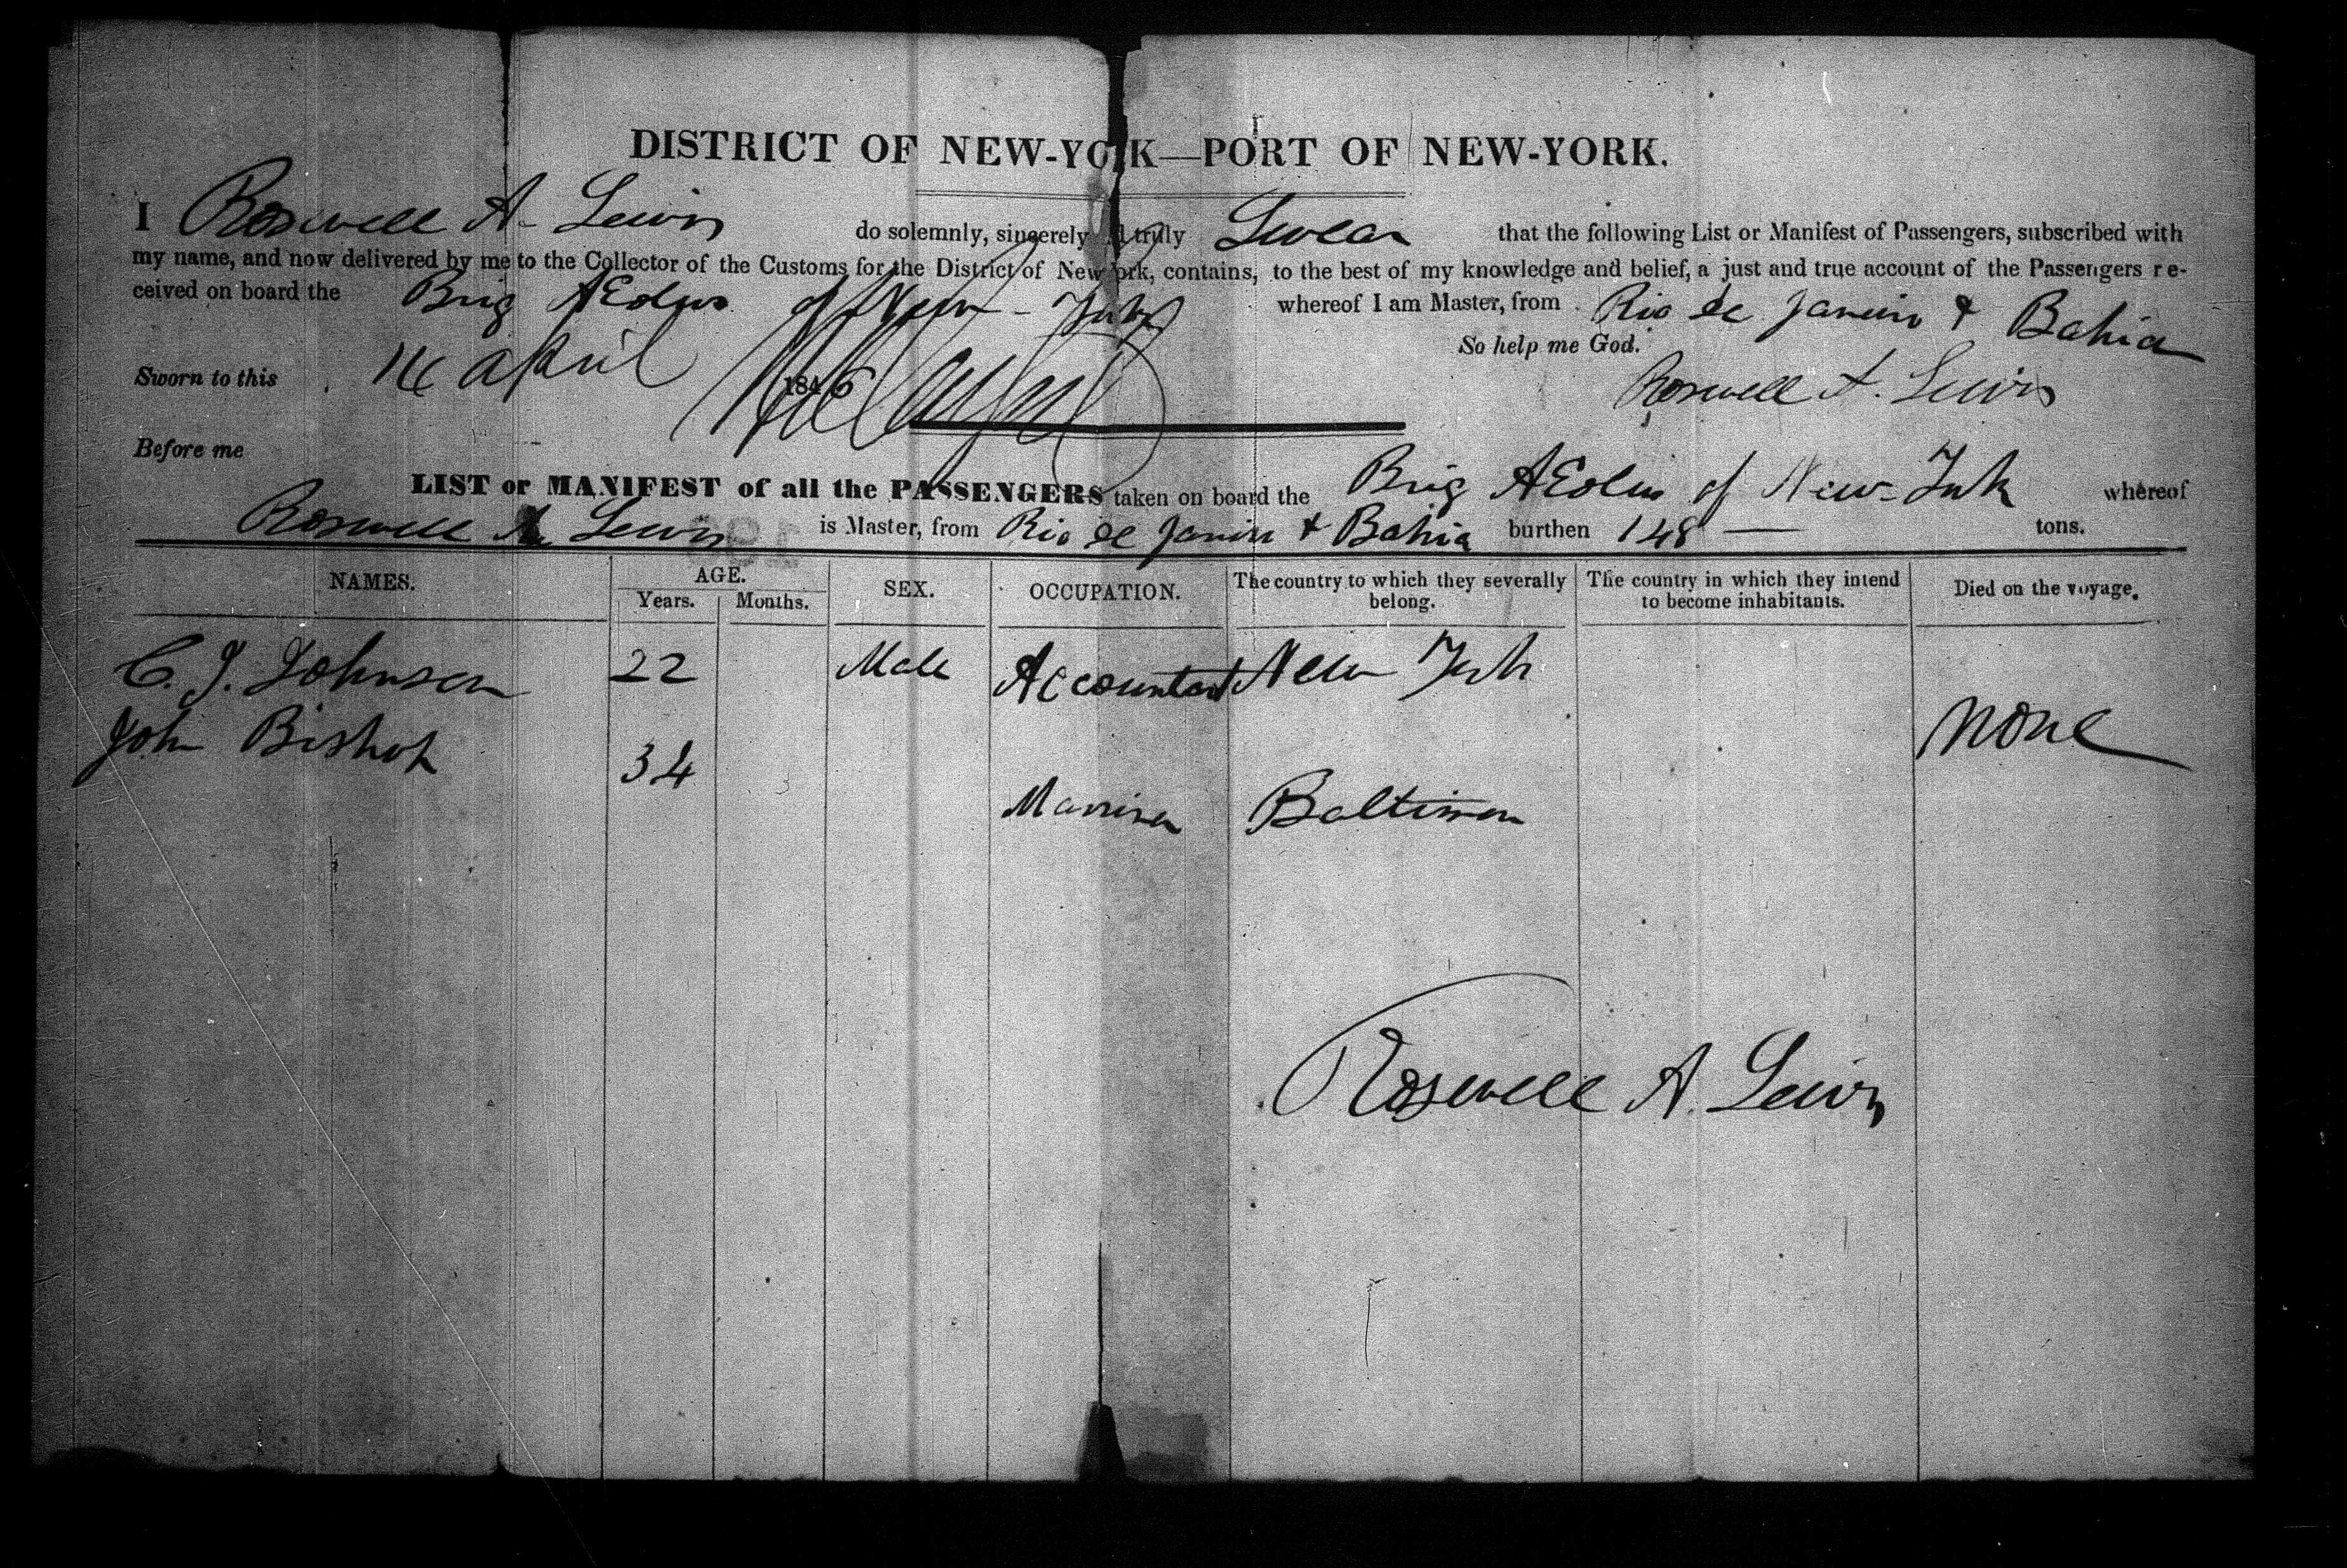 DISTRICT OF NEW-YORK—PORT OF NEW-YORK.
I Roswell A. Lewis do solemnly, sincerely truly Swear that the following List or Manifest of Passengers, subscribed with
my name, and now delivered by me to the Collector of the Customs for the District of New York, contains, to the best of my knowledge and belief, a just and true account of the Passengers re-
ceived on board the Brig AEolus of New-York whereof I am Master, from Rio de Janeiro & Bahia
So help me God.
Sworn to this 16 April 1846 Roswell A. Lewis
Before me
LIST or MANIFEST of all the PASSENGERS taken on board the Brig AEolus of New-York whereof
Roswell A. Lewis is Master, from Rio de Janeiro & Bahia burthen 148 — tons.
NAMES. AGE. Years. Months. SEX. OCCUPATION. The country to which they severally belong. The country in which they intend to become inhabitants. Died on the voyage.
C. J. Johnson 22 Male Accountant New York
John Bishop 34 Marriner Baltimore None
Roswell A. Lewis